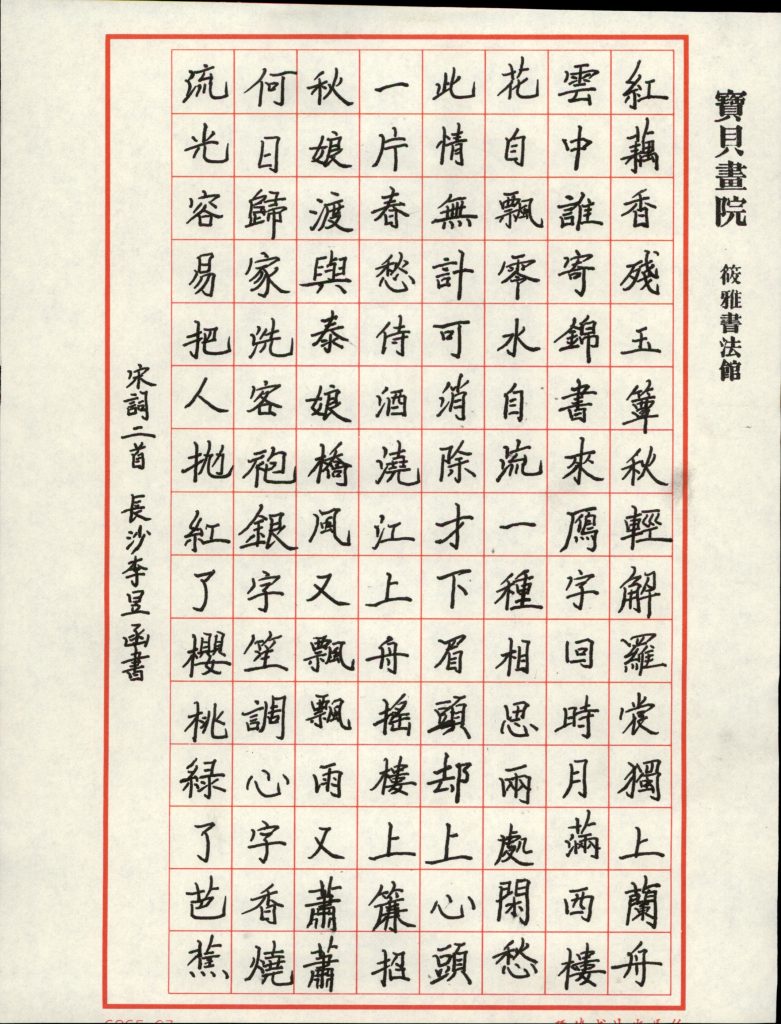 寶貝畫院 筱雅書法館
紅藕香殘玉簟秋輕解羅裳獨上蘭舟
雲中誰寄錦書來鴈字回時月滿西樓
花自飄零水自流一種相思兩處閑愁
此情無計可消除才下眉頭却上心頭
一片春愁侍酒澆江上舟搖樓上簾招
秋娘渡與泰娘橋風又飄飄雨又蕭蕭
何日歸家洗客袍銀字笙調心字香燒
流光容易把人拋紅了櫻桃綠了芭蕉
宋詞二首 長沙李昱函書